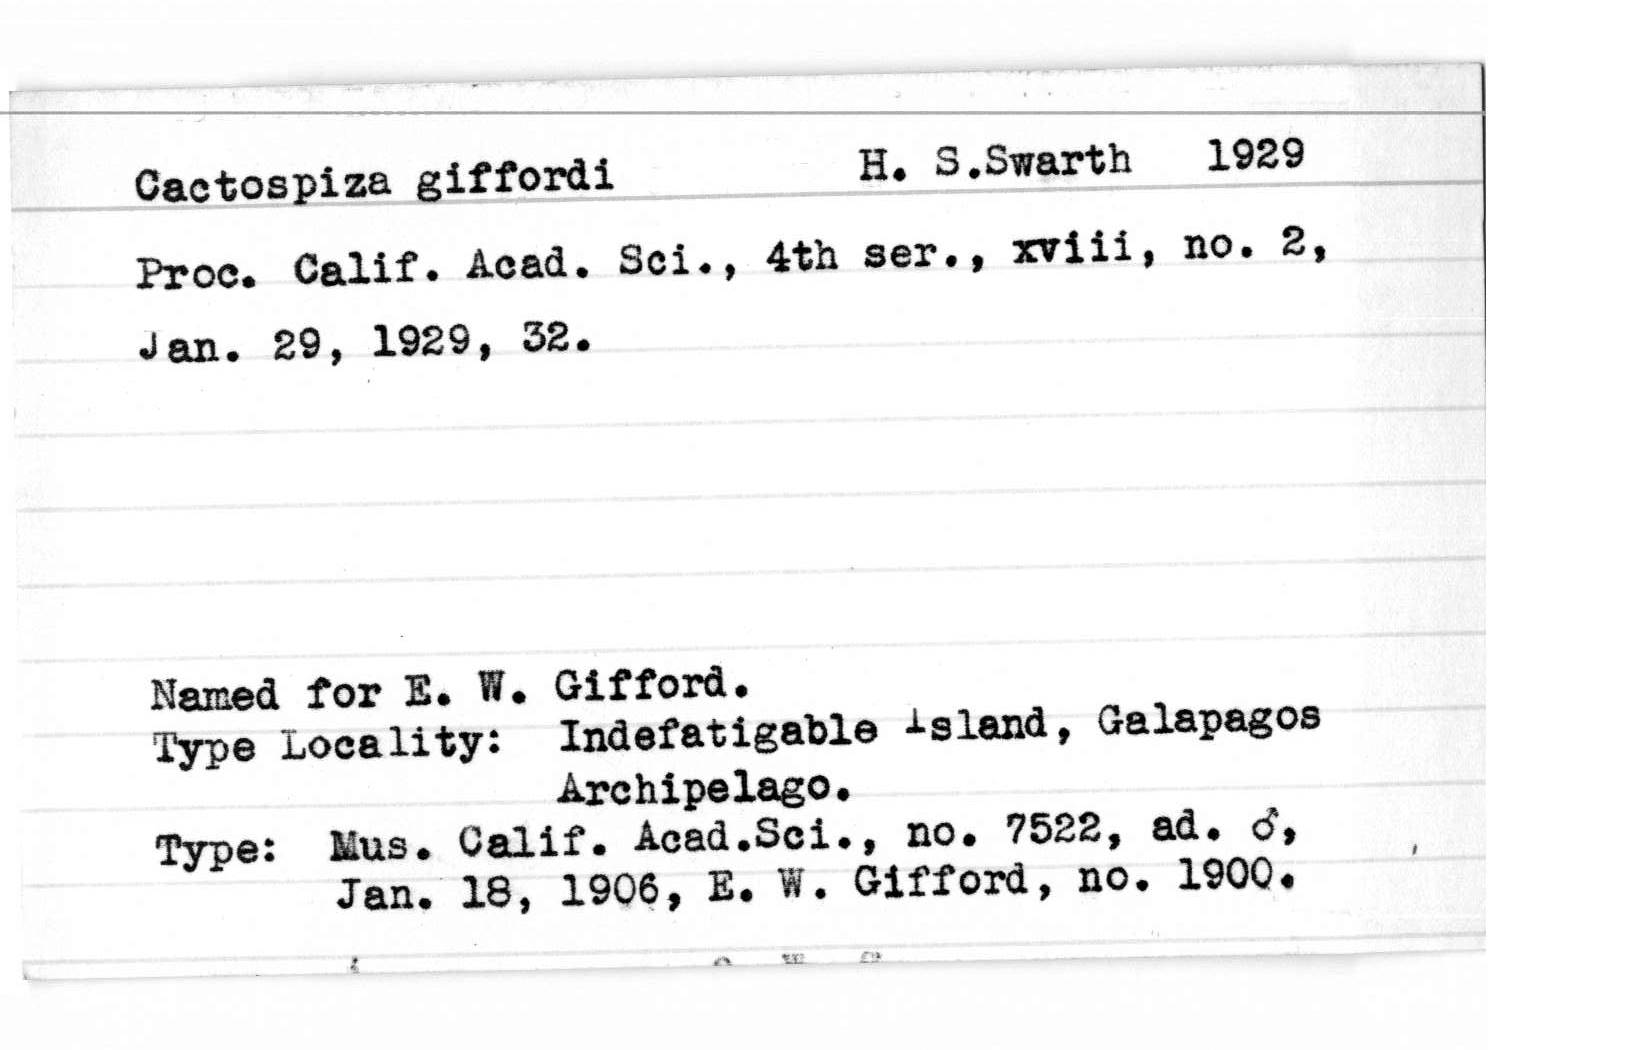 Cactospiza giffordi H. S.Swarth 1929
Proc. Calif. Acad. Sci., 4th ser., xviii, no. 2,
Jan. 29, 1929, 32.
Named for E. W. Gifford.
Type Locality: Indefatigable Island, Galapagos
Archipelago.
Type: Mus. Calif. Acad.Sci., no. 7522, ad. ♂,
Jan. 18, 1906, E. W. Gifford, no. 1900.